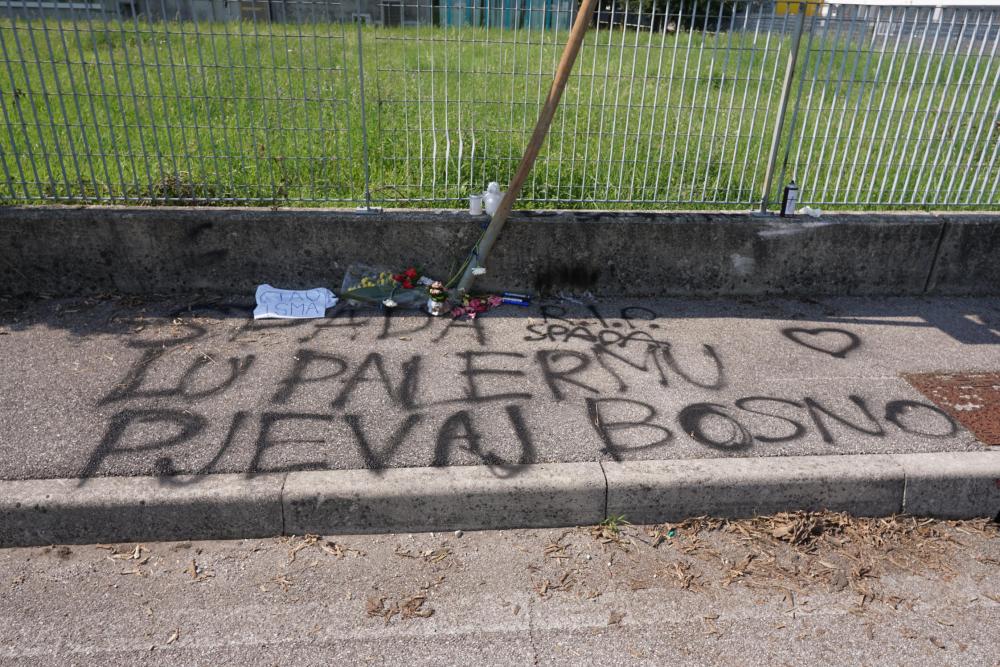 CIAO
IGMA
SPADA
R.I.P.
SPADA
LU PALERMU
PJEVAJ BOSNO